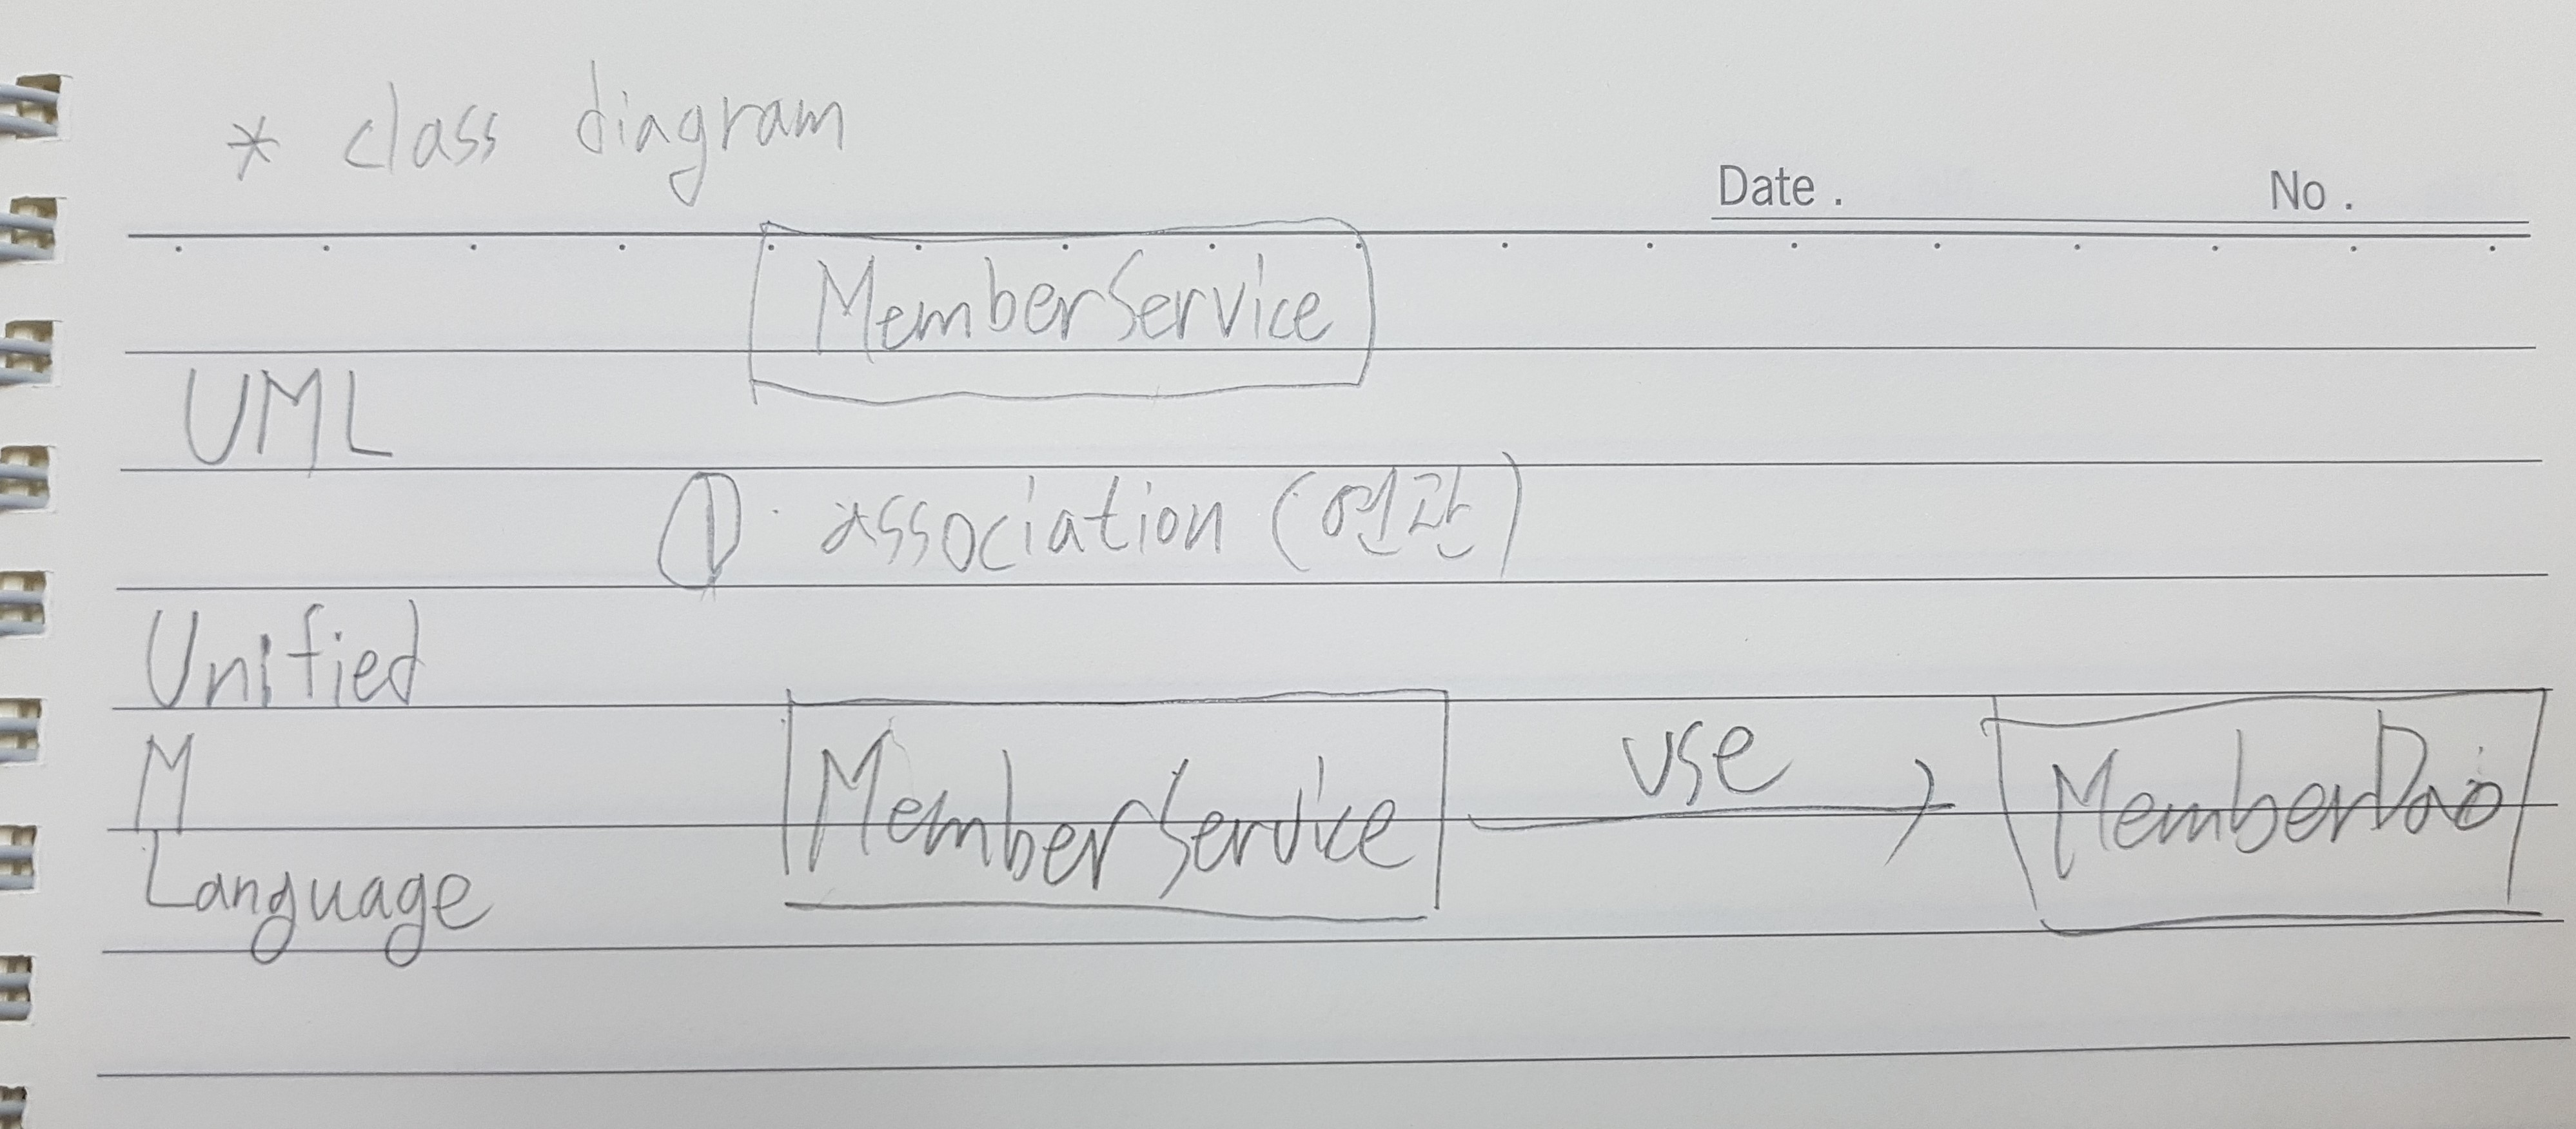 * class diagram
Date. No.
MemberService
UML
① association (연관)
Unified
M
Language
MemberService use MemberDao